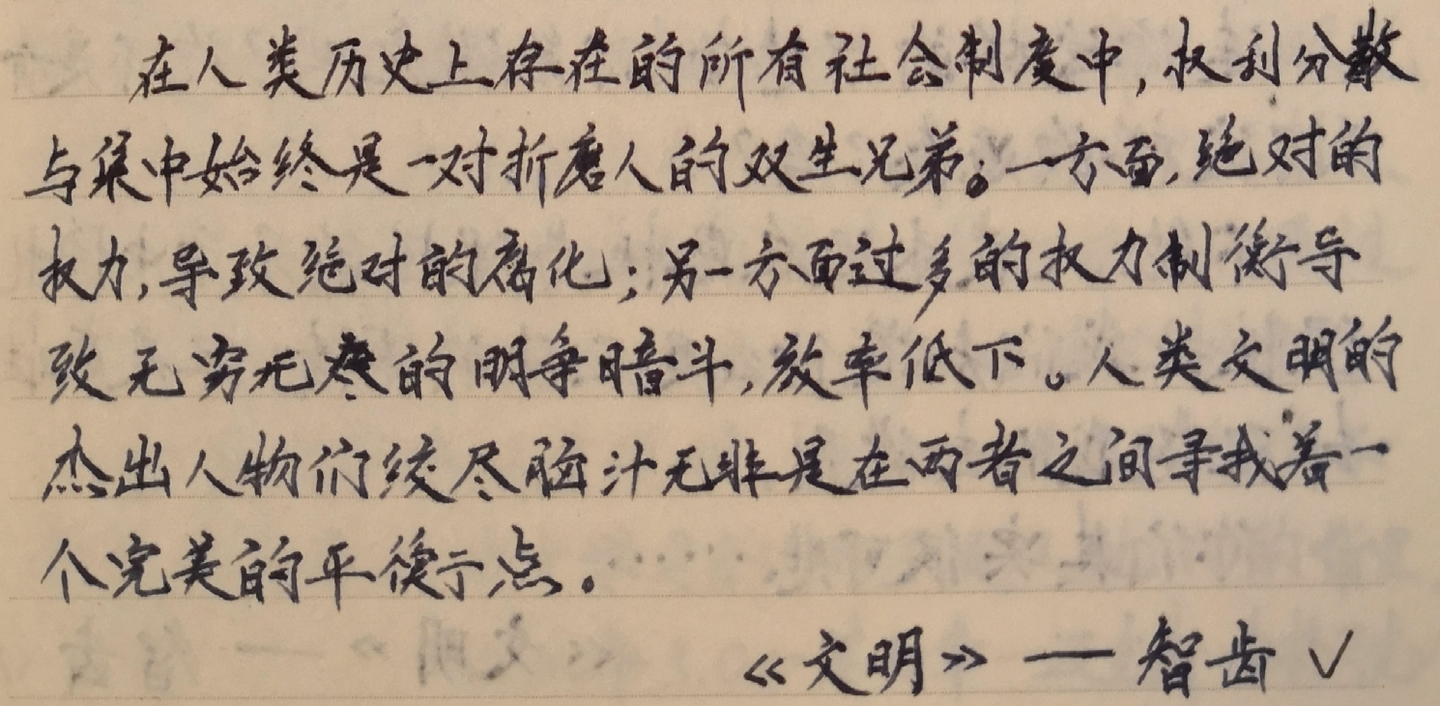 在人类历史上存在的所有社会制度中,权利分散
与集中始终是一对折磨人的双生兄弟。一方面,绝对的
权力,导致绝对的腐化;另一方面过多的权力制衡导
致无穷无尽的明争暗斗,效率低下。人类文明的
杰出人物们绞尽脑汁无非是在两者之间寻找着一
个完美的平衡点.
《文明》——智齿✓